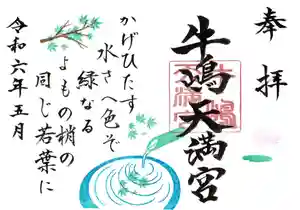 奉拝
牛嶋天満宮
かげひたす
水さへ色ぞ
緑なる
よもの梢の
同じ若葉に
令和六年五月